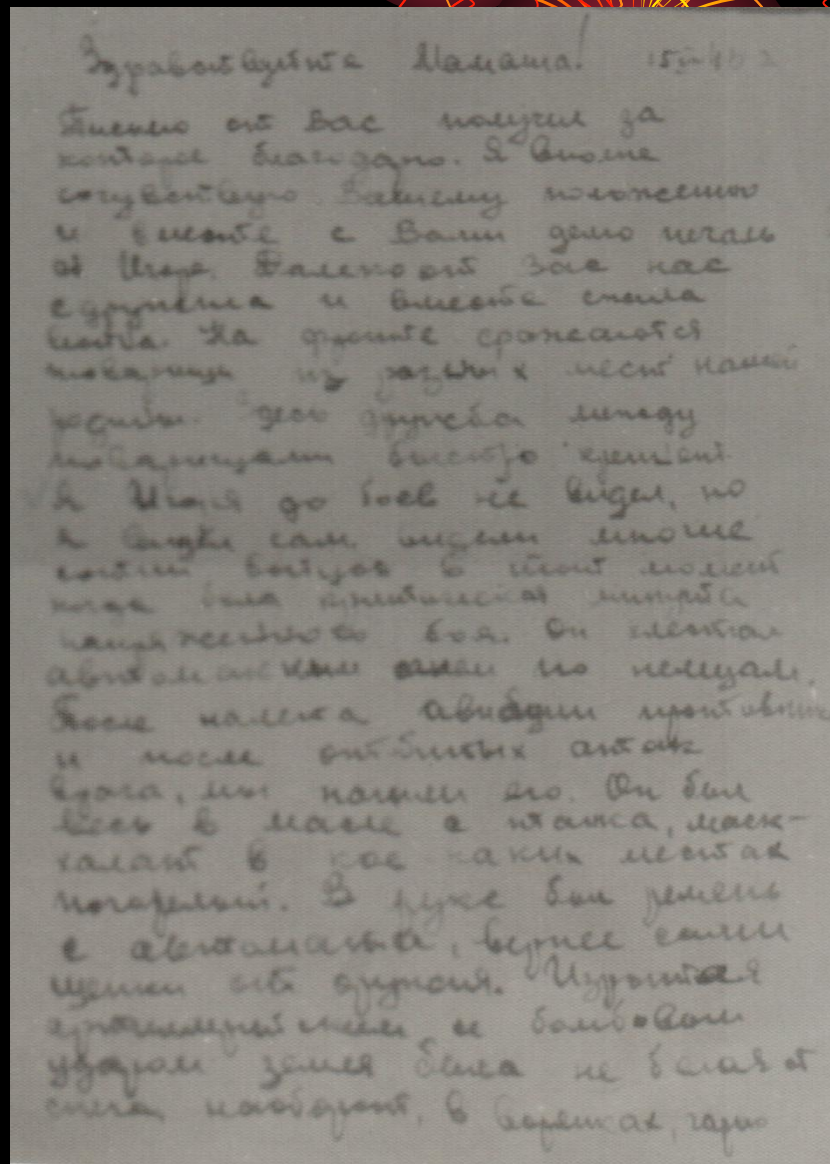 Здравствуйте Мамаша!
Письмо от Вас получил за
которое благодарю. Я вполне
сочувствую Вашему положению
и вместе с Вами делю печаль
Игоре. Далеко от Вас нас
сдружила и вместе свела
война. На фронте сражаются
товарищи из разных мест нашей
родины. Здесь дружба между
товарищами быстро крепнет.
Я Игоря до боев не видел, но
я видел сам, видели многие
сотни бойцов в тот момент
когда была критическая минута
напряженного боя. Он хлестал
автоматным огнем по немцам.
После налета авиации противника
и после отбитых атак
врага, мы нашли его. Он был
весь в масле с танка, маск-
халат в кое каких местах
погорелый. В руке был ремень
с автомата, вернее одни
щепки от оружия. Изрытая
артиллерией и бомбовым
ударом земля была не белая от
снега, наоборот, в воронках,